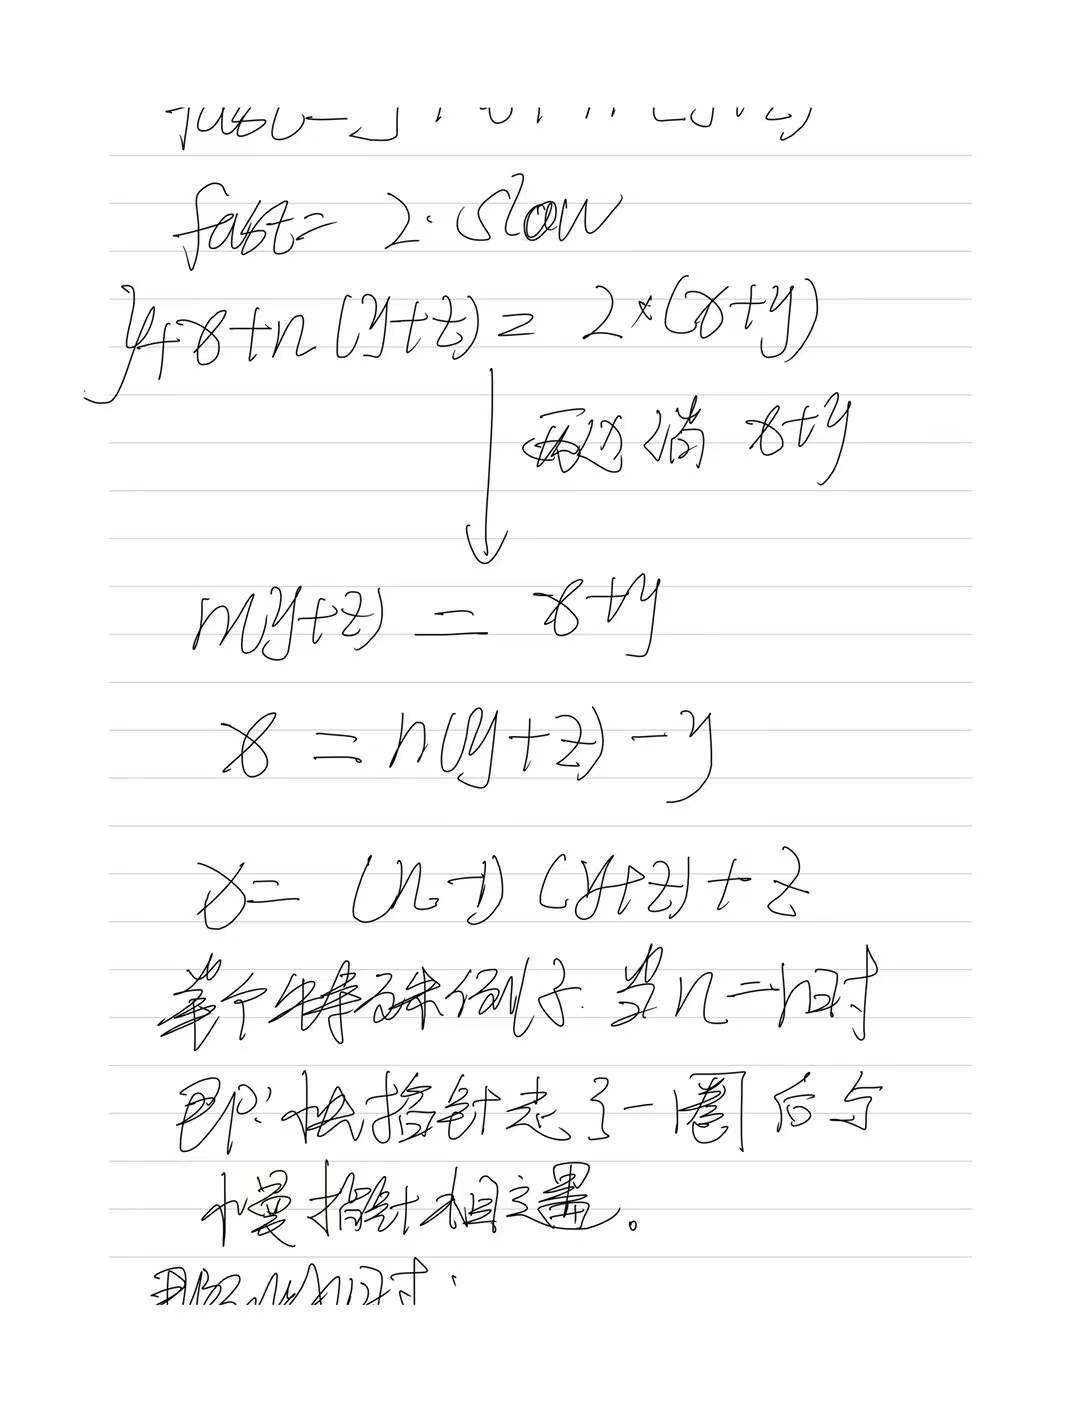 fast = 2·slow
y+x+n(y+z) = 2×(x+y)
两边消 x+y
n(y+z) = x+y
x = n(y+z)-y
x = (n-1)(y+z)+z
举个特殊例子.当n=1时
即:快指针走了一圈后与
慢指针相遇。